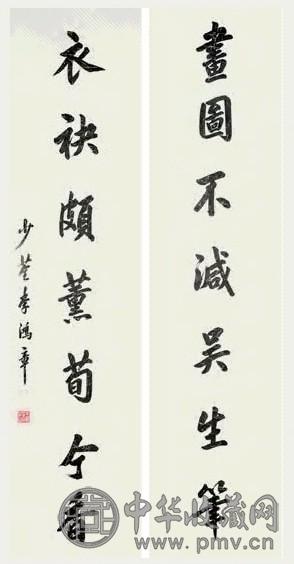 畫圖不減吳生筆
衣袂頗薰荀令香
少荃李鴻章
中华收藏网
www.pmv.cn